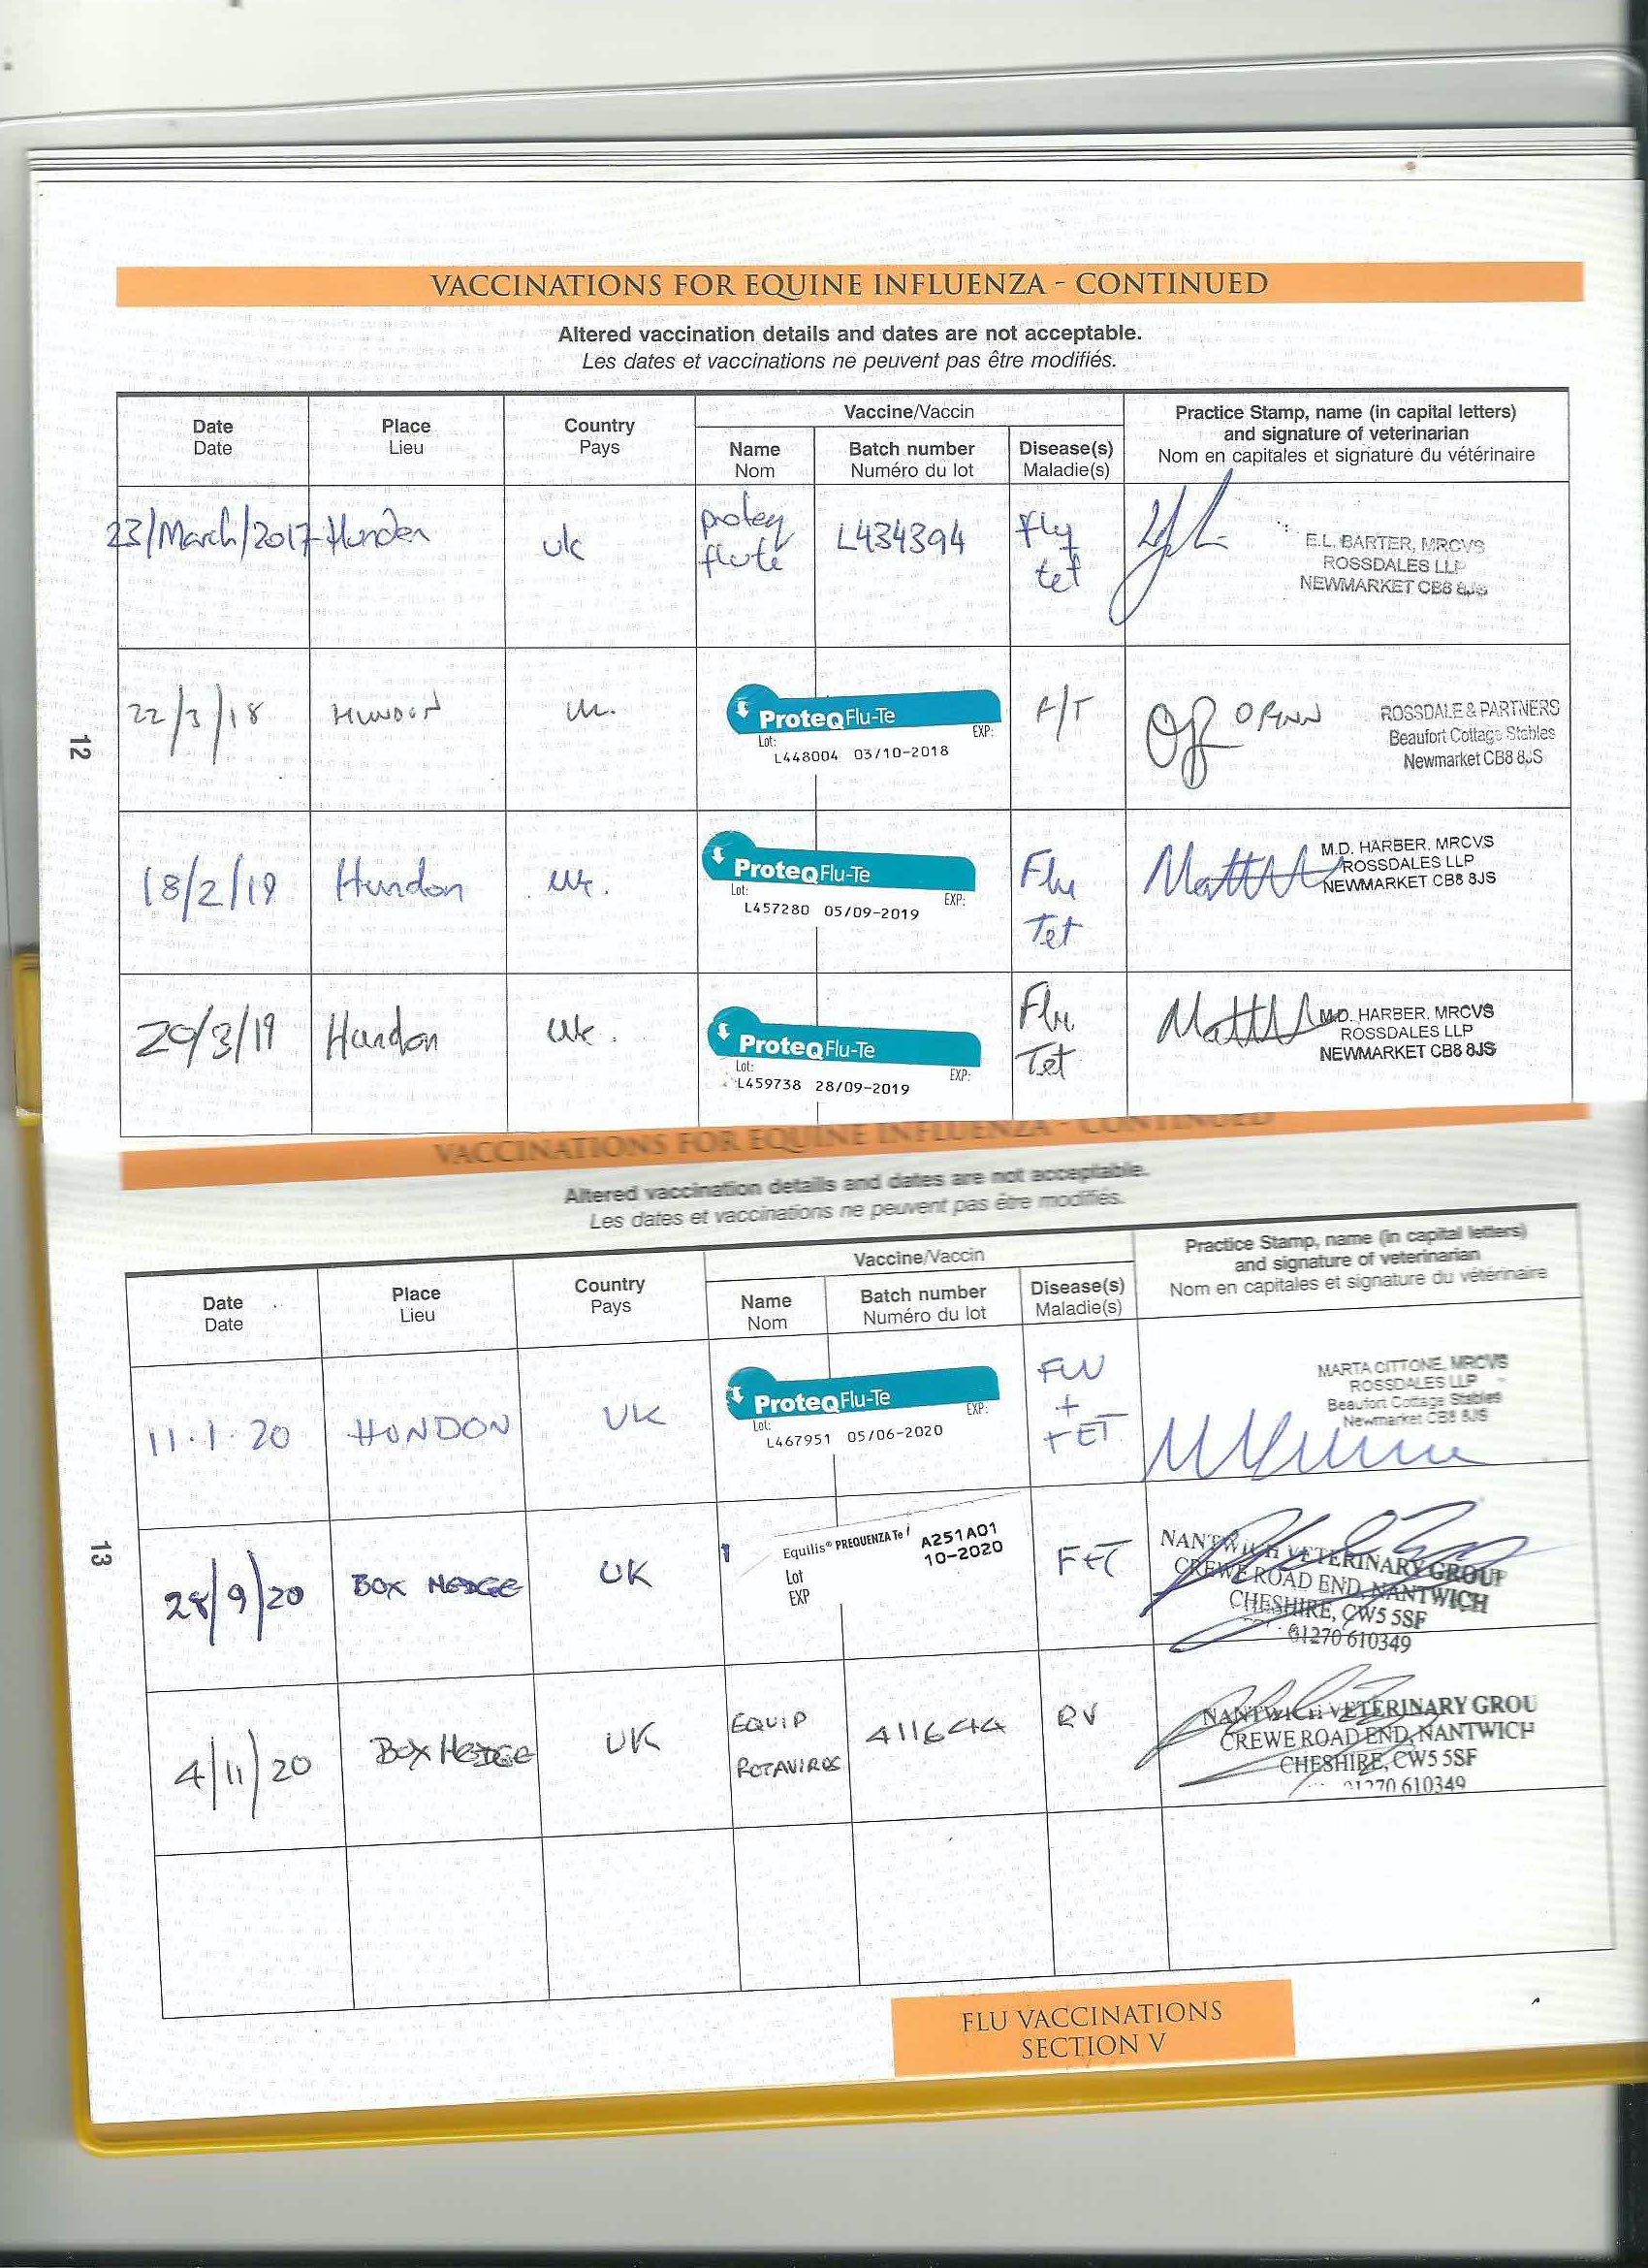 VACCINATIONS FOR EQUINE INFLUENZA - CONTINUED
Altered vaccination details and dates are not acceptable.
Les dates et vaccinations ne peuvent pas être modifiés.
Date
Date
Place
Lieu
Country
Pays
Vaccine/Vaccin
Name
Nom
Batch number
Numéro du lot
Disease(s)
Maladie(s)
Practice Stamp, name (in capital letters)
and signature of veterinarian
Nom en capitales et signature du vétérinaire
23/March/2017 Hundon
uk
proteq
flute
L434394
Flu
tet
E.L. BARTER, MRCVS
ROSSDALES LLP
NEWMARKET CB8 8JS
22/3/18
HUNDON
UK.
ProteqFlu-Te
Lot:
EXP:
L448004 03/10-2018
F/T
ROSSDALE & PARTNERS
Beaufort Cottage Stables
Newmarket CB8 8JS
18/2/19
Hundon
UK.
ProteqFlu-Te
Lot:
EXP:
L457280 05/09-2019
Flu
Tet
M.D. HARBER. MRCVS
ROSSDALES LLP
NEWMARKET CB8 8JS
Hundon
UK.
ProteqFlu-Te
Lot:
EXP:
L459738 28/09-2019
Flu
Tet
M.D. HARBER, MRCVS
ROSSDALES LLP
NEWMARKET CB8 8JS
12
VACCINATIONS FOR EQUINE INFLUENZA - CONTINUED
Altered vaccination details and dates are not acceptable.
Les dates et vaccinations ne peuvent pas être modifiés.
Date
Date
Place
Lieu
Country
Pays
Vaccine/Vaccin
Name
Nom
Batch number
Numéro du lot
Disease(s)
Maladie(s)
Practice Stamp, name (in capital letters)
and signature of veterinarian
Nom en capitales et signature du vétérinaire
11.1.20
HUNDON
UK
ProteqFlu-Te
Lot:
EXP:
L467951 05/06-2020
FLU
+
TET
MARTA CITTONE, MRCVS
ROSSDALES LLP
Beaufort Cottage Stables
Newmarket CB8 8JS
28/9/20
BOX HEDGE
UK
Equilis® PREQUENZA Te
A251A01
10-2020
Lot
EXP
F+T
NANTWICH VETERINARY GROUP
CREWE ROAD END, NANTWICH
CHESHIRE, CW5 5SF
01270 610349
4/11/20
BOX HEDGE
UK
EQUIP
ROTAVIRUS
RV
NANTWICH VETERINARY GROU
CREWE ROAD END, NANTWICH
CHESHIRE, CW5 5SF
01270 610349
13
FLU VACCINATIONS
SECTION V